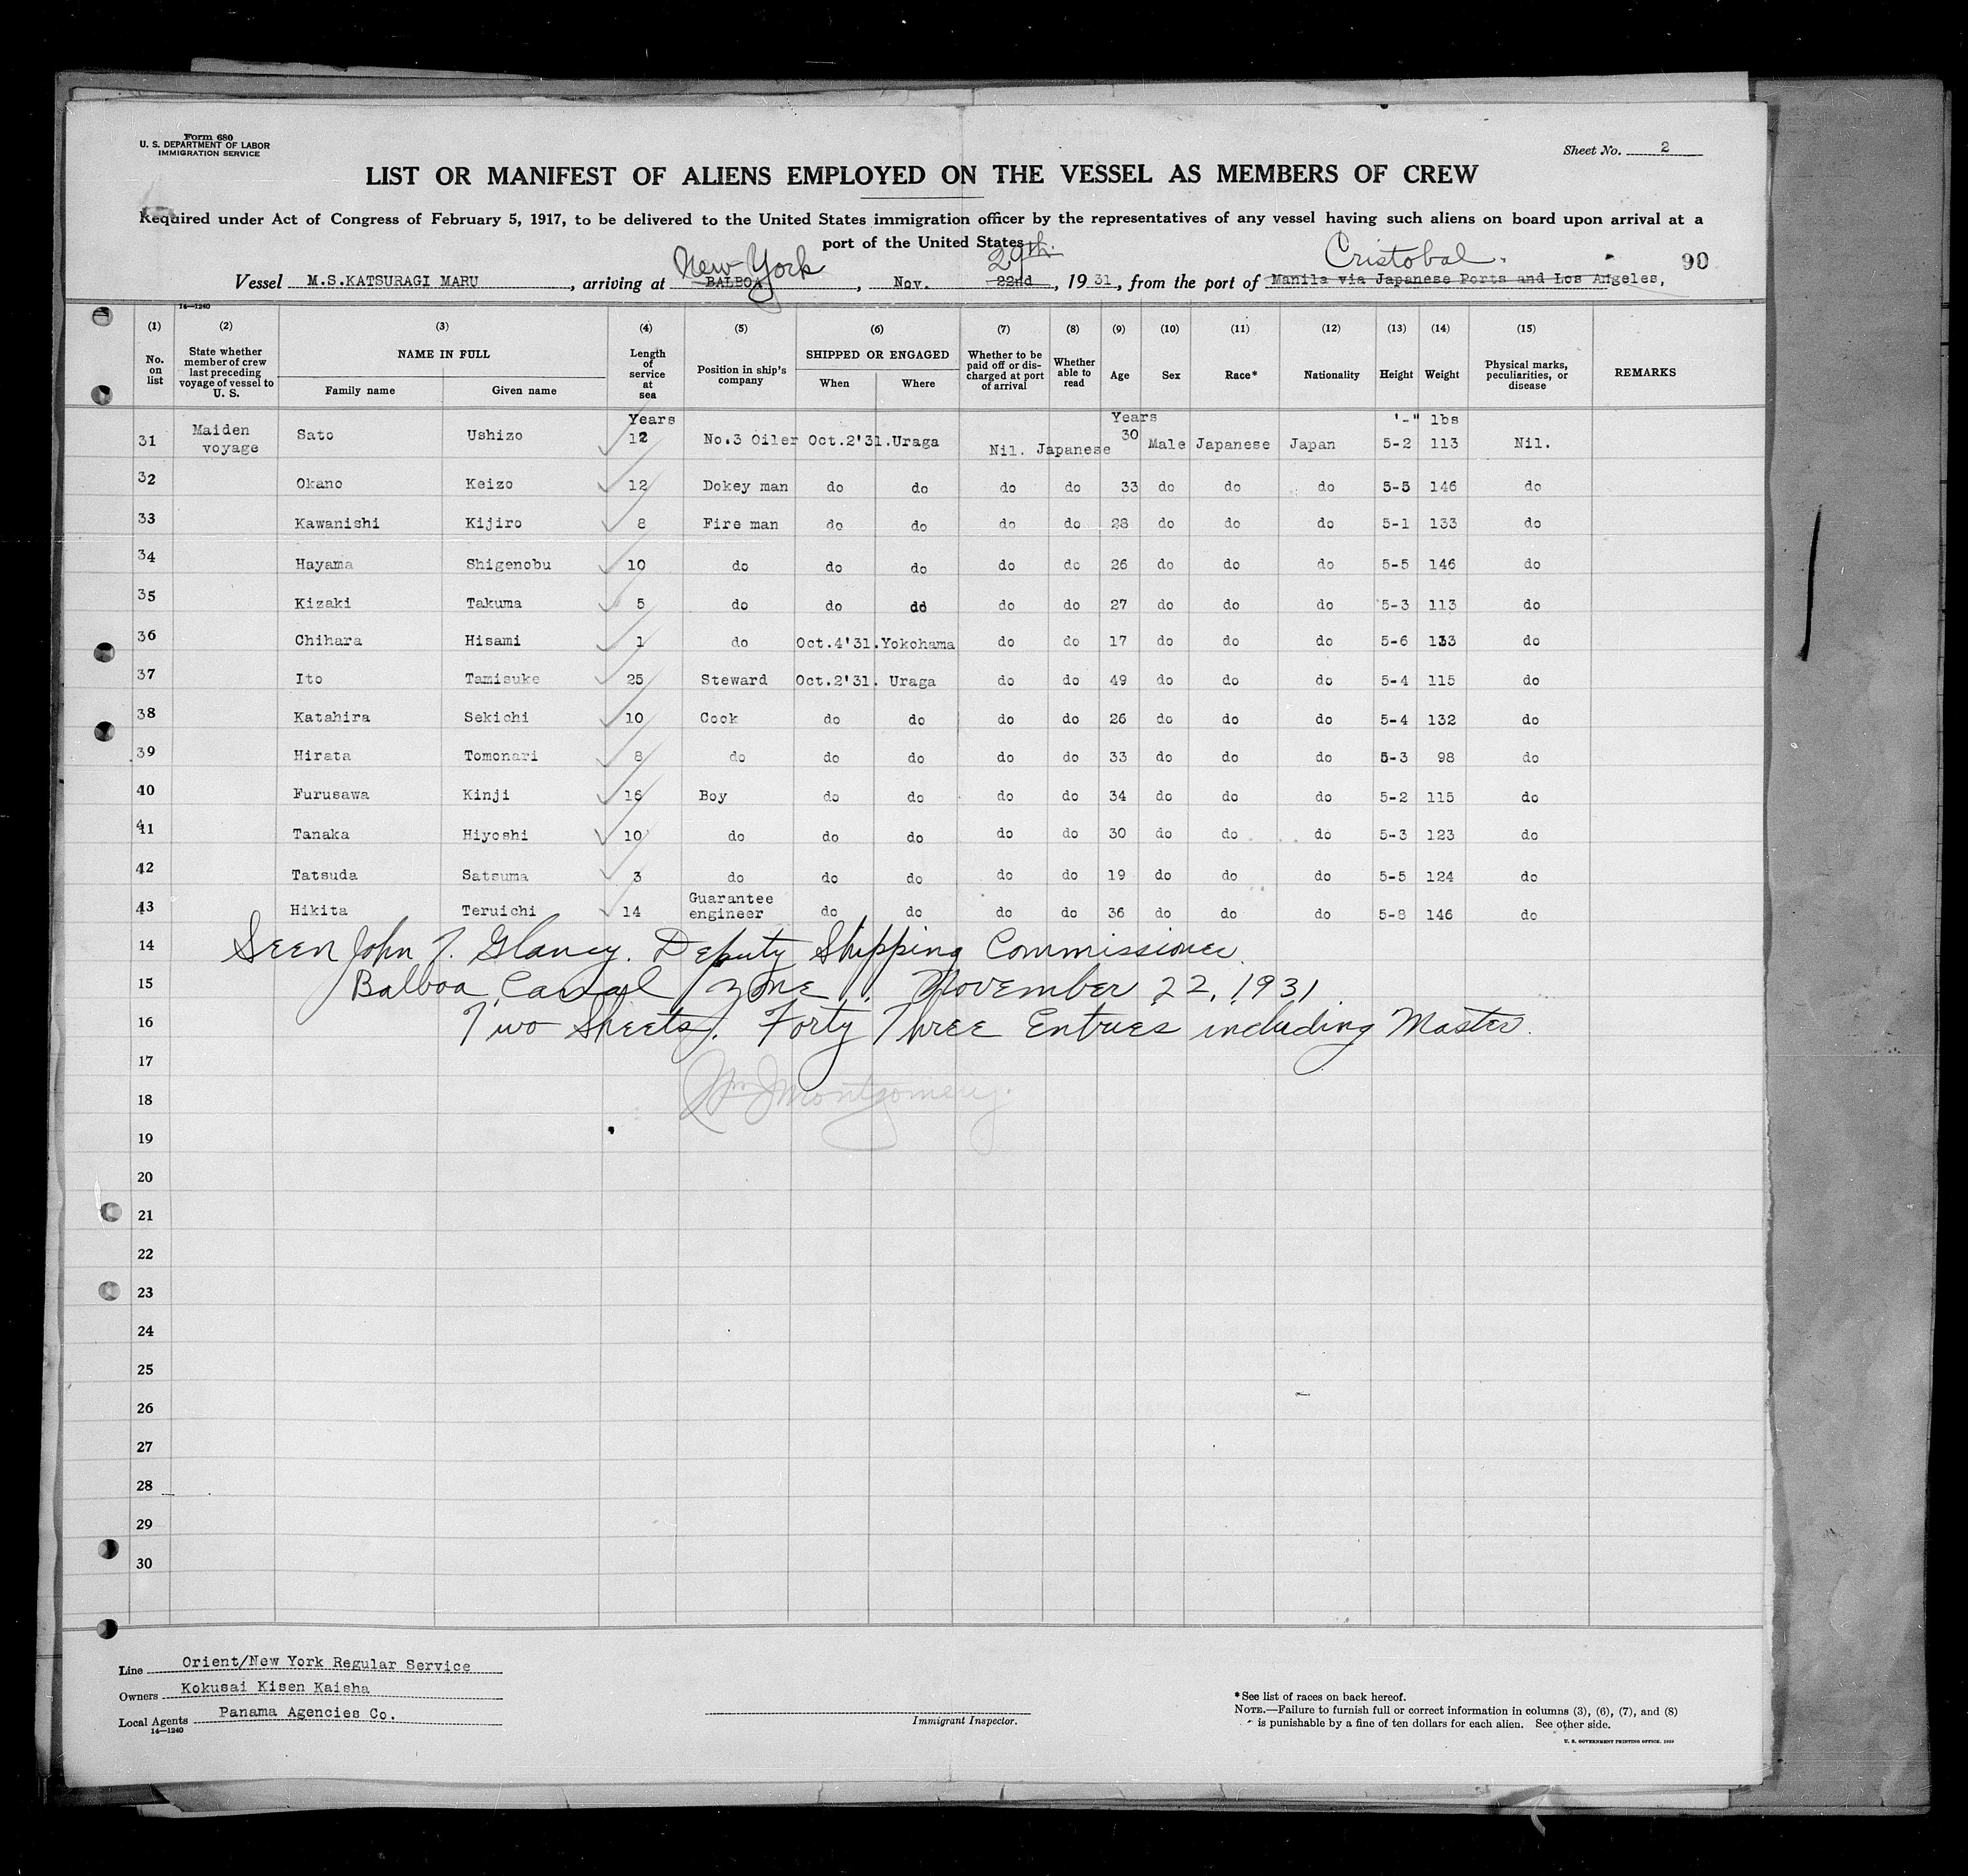 Form 680
U. S. DEPARTMENT OF LABOR
IMMIGRATION SERVICE
Sheet No. 2
LIST OR MANIFEST OF ALIENS EMPLOYED ON THE VESSEL AS MEMBERS OF CREW
Required under Act of Congress of February 5, 1917, to be delivered to the United States immigration officer by the representatives of any vessel having such aliens on board upon arrival at a
port of the United States
New York 29th. Cristobal. 90
Vessel M.S.KATSURAGI MARU, arriving at BALBOA, Nov. 22nd, 1931, from the port of Manila via Japanese Ports and Los Angeles,
14—1240
(1) (2) (3) (4) (5) (6) (7) (8) (9) (10) (11) (12) (13) (14) (15)
No. on list State whether member of crew last preceding voyage of vessel to U. S. NAME IN FULL Family name Given name Length of service at sea Position in ship's company SHIPPED OR ENGAGED When Where Whether to be paid off or discharged at port of arrival Whether able to read Age Sex Race* Nationality Height Weight Physical marks, peculiarities, or disease REMARKS
Years Years '-" lbs
31 Maiden voyage Sato Ushizo 12 No.3 Oiler Oct.2'31. Uraga Nil. Japanese 30 Male Japanese Japan 5-2 113 Nil.
32 Okano Keizo 12 Dokey man do do do do 33 do do do 5-5 146 do
33 Kawanishi Kijiro 8 Fire man do do do do 28 do do do 5-1 133 do
34 Hayama Shigenobu 10 do do do do do 26 do do do 5-5 146 do
35 Kizaki Takuma 5 do do dd do do 27 do do do 5-3 113 do
36 Chihara Hisami 1 do Oct.4'31. Yokohama do do 17 do do do 5-6 133 do
37 Ito Tamisuke 25 Steward Oct.2'31. Uraga do do 49 do do do 5-4 115 do
38 Katahira Sekichi 10 Cook do do do do 26 do do do 5-4 132 do
39 Hirata Tomonari 8 do do do do do 33 do do do 5-3 98 do
40 Furusawa Kinji 16 Boy do do do do 34 do do do 5-2 115 do
41 Tanaka Hiyoshi 10 do do do do do 30 do do do 5-3 123 do
42 Tatsuda Satsuma 3 do do do do do 19 do do do 5-5 124 do
43 Hikita Teruichi 14 Guarantee engineer do do do do 36 do do do 5-8 146 do
14 Seen John J. Glancy. Deputy Shipping Commissioner.
15 Balboa, Canal Zone, November 22, 1931
16 Two Sheets. Forty Three Entries including Master.
17
18 Wm J Montgomery.
19
20
21
22
23
24
25
26
27
28
29
30
Line Orient/New York Regular Service
Owners Kokusai Kisen Kaisha
Local Agents Panama Agencies Co.
14—1240
Immigrant Inspector.
*See list of races on back hereof.
NOTE.—Failure to furnish full or correct information in columns (3), (6), (7), and (8)
is punishable by a fine of ten dollars for each alien. See other side.